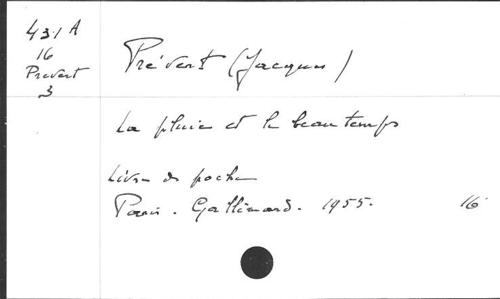 431 A
16
Prevert
3
Prévert (Jacques)
La pluie et le beau temps
Livre de poche
Paris. Gallimard. 1955. 16